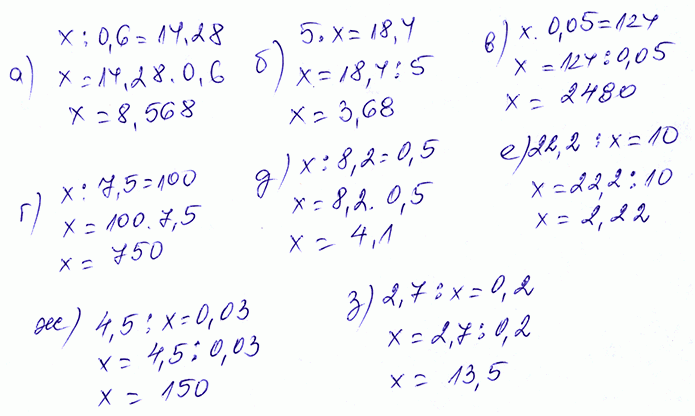 а) x : 0,6 = 14,28
x = 14,28 · 0,6
x = 8,568
б) 5 · x = 18,4
x = 18,4 : 5
x = 3,68
в) x · 0,05 = 124
x = 124 : 0,05
x = 2480
г) x : 7,5 = 100
x = 100 · 7,5
x = 750
д) x : 8,2 = 0,5
x = 8,2 · 0,5
x = 4,1
е) 22,2 : x = 10
x = 22,2 : 10
x = 2,22
ж) 4,5 : x = 0,03
x = 4,5 : 0,03
x = 150
з) 2,7 : x = 0,2
x = 2,7 : 0,2
x = 13,5